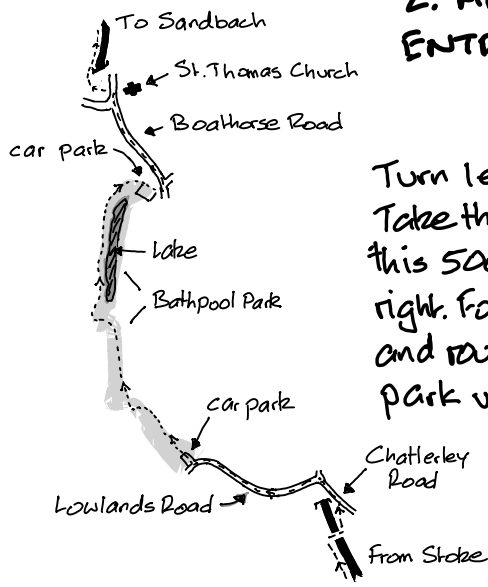 To Sandbach
St. Thomas Church
Boathorse Road
car park
Lake
Bathpool Park
car park
Chatterley
Road
Lowlands Road
From Stoke
2.
ENTR
Turn le
Take th
this 50
right. Fo
and rou
park u